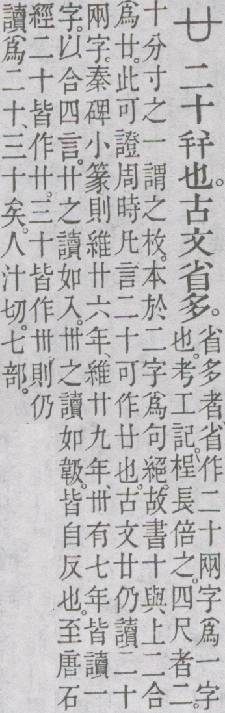 廿 二十幷也。古文省多。
省多者、省作二十兩字爲一字
也。考工記。桯長倍之。四尺者二。
十分寸之一謂之枚。本於二字爲句絕。故書十與上二合
爲廿。此可證周時凡言二十可作廿也。古文廿仍讀二十
兩字。秦碑小篆則維廿六年、維廿九年、卅有七年皆讀一
字。以合四言。廿之讀如入。卅之讀如靸。皆自反也。至唐石
經二十皆作廿。三十皆作卅。則仍
讀爲二十、三十矣。人汁切。七部。